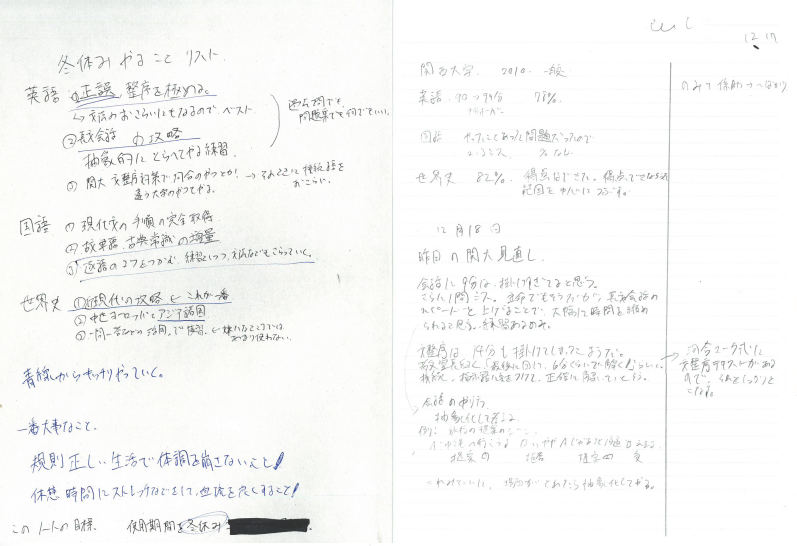 冬休みやることリスト
英語 ①正誤、整序を極める。
→文法のおさらいにもなるので、ベスト
②長文会話 の攻略
抽象的にとらへてやる練習。
過去問でも、
問題集でも何でもいい。
③ 関大 文整序対策で河合のやつとか、
違う大学のやつをやる。
→そのときに接続語を
おさらい。
国語 ① 現代文の手順の完全取得
② 故事語、古典常識の増量
③ 逐語のコツをつかむ、練習しつつ、文法などもさらっていく。
世界史 ①近現代の攻略 ← これが一番
②中世ヨーロッパとアジア諸国
③一問一答などの活用で復習。
青線からキッチリやっていく。
一番大事なこと、
規則正しい生活で体調を崩さないこと!
休憩時間にストレッチなどをして、血流を良くすること!
このノートの目標、 使用期間を冬休み
12 17
関西大学 2010 一般
英語 90→94分 78%
国語 やったことあった問題だったので
世界史 82%
得点はできた。得点できなかった
範囲を
12月18日
昨日の関大見直し
会話に 分は、掛けすぎてると思う。
さらに1問ミス。 長文会話の
スピードを上げることで、大幅に時間を縮め
られると思う。練習あるのみ。
文整序は14分も掛けてしまったようだ。
最後に回して、6分くらいで解くらしい。
接続、指示語に気をつけて、正確に解いていこう。
→河合 に
文整序テキストがある
ので、それをしっかりと
こなす。
会話のやり方
抽象化して考える。
例:
提案
抽象化してやる。